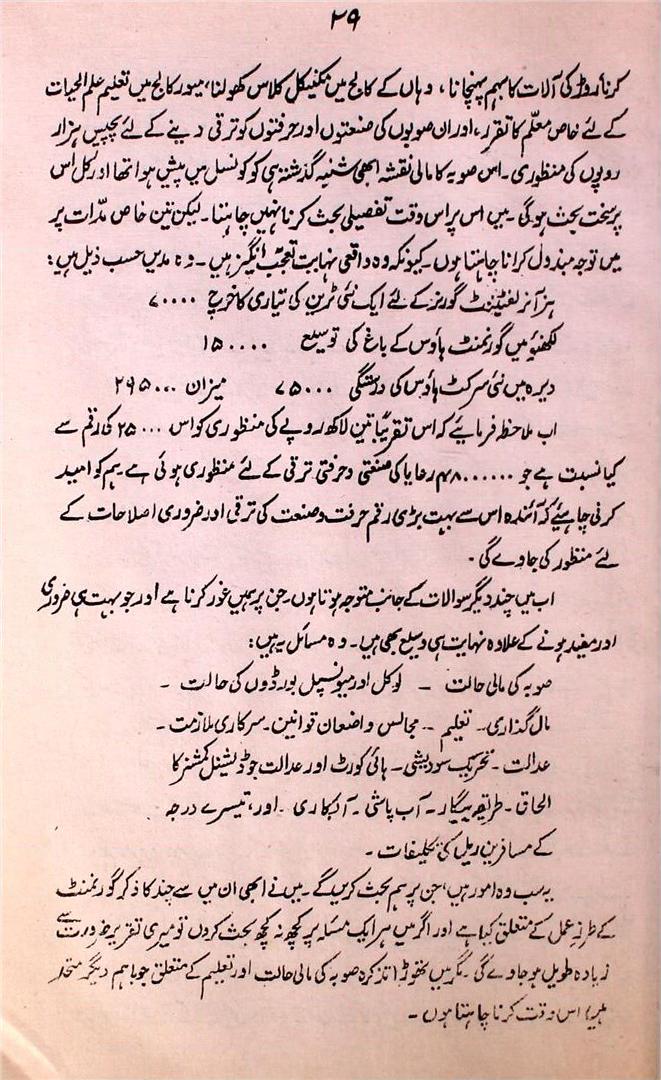 ۲۹
کرنا، روڑ کی آلات کا بہم پہنچانا، وہاں کے کالج میں مکنیکل کلاس کھولنا، میور کالج میں تعلیم علم الحیات
کے لئے خاص معلّم کا تقرر، اور ان صوبوں کی صنعتوں اور حرفتوں کو ترقی دینے کے لئے پچیس ہزار
روپوں کی منظوری۔ اس صوبہ کا مالی نقشہ ابھی شنبہ گذشتہ ہی کو کونسل میں پیش ہوا تھا اور کل اس
پر سخت بحث ہوگی۔ میں اس پر اس وقت تفصیلی بحث کرنا نہیں چاہتا۔ لیکن تین خاص مدّات پر
میں توجہ مبذول کرانا چاہتا ہوں۔ کیونکہ وہ واقعی نہایت تعجب انگیز ہیں۔ وہ مدیں حسب ذیل ہیں:
ہز آنر لفٹیننٹ گورنر کے لئے ایک نئی ٹرین کی تیاری کا خرچ ۷۰۰۰۰
لکھنؤ میں گورنمنٹ ہاؤس کے باغ کی توسیع ۱۵۰۰۰۰
ڈیرہ میں نئی سرکٹ ہاؤس کی درستگی ۷۵۰۰۰ میزان ۲۹۵۰۰۰
اب ملاحظہ فرمایئے کہ اس تقریباً تین لاکھ روپے کی منظوری کو اس ۲۵۰۰۰ کی رقم سے
کیا نسبت ہے جو ۴۸۰۰۰۰۰۰ رعایا کی صنعتی و حرفتی ترقی کے لئے منظوری ہوئی ہے۔ ہم کو امید
کرنی چاہیئے کہ آئندہ اس سے بہت بڑی رقم حرفت و صنعت کی ترقی اور ضروری اصلاحات کے
لئے منظور کی جاوے گی۔
اب میں چند دیگر سوالات کے جانب متوجہ ہوتا ہوں۔ جن پر ہمیں غور کرنا ہے اور جو بہت ہی ضروری
اور مفید ہونے کے علاوہ نہایت ہی وسیع بھی ہیں۔ وہ مسائل یہ ہیں:
صوبہ کی مالی حالت ۔ لوکل اور میونسپل بورڈوں کی حالت ۔
مال گذاری۔ تعلیم ۔ مجالس واضعان قوانین۔ سرکاری ملازمت۔
عدالت ۔ تحریک سودیشی۔ ہائی کورٹ اور عدالت جوڈیشنل کمشنر کا
الحاق۔ طریقہ بیگار۔ آب پاشی۔ آبکاری۔ اور، تیسرے درجہ
کے مسافرین ریل کی تکلیفات۔
یہ سب وہ امور ہیں، جن پر ہم بحث کریں گے۔ میں نے ابھی ان میں سے چند کا ذکر گورنمنٹ
کے طرز عمل کے متعلق کیا ہے اور اگر میں ہر ایک مسئلہ پر کچھ نہ کچھ بحث کروں تو میری تقریر ضرورت سے
زیادہ طویل ہو جاوے گی۔ مگر میں تھوڑا تذکرہ صوبہ کی مالی حالت اور تعلیم کے متعلق جو باہم دیگر متحد
ہیں، اس وقت کرنا چاہتا ہوں۔